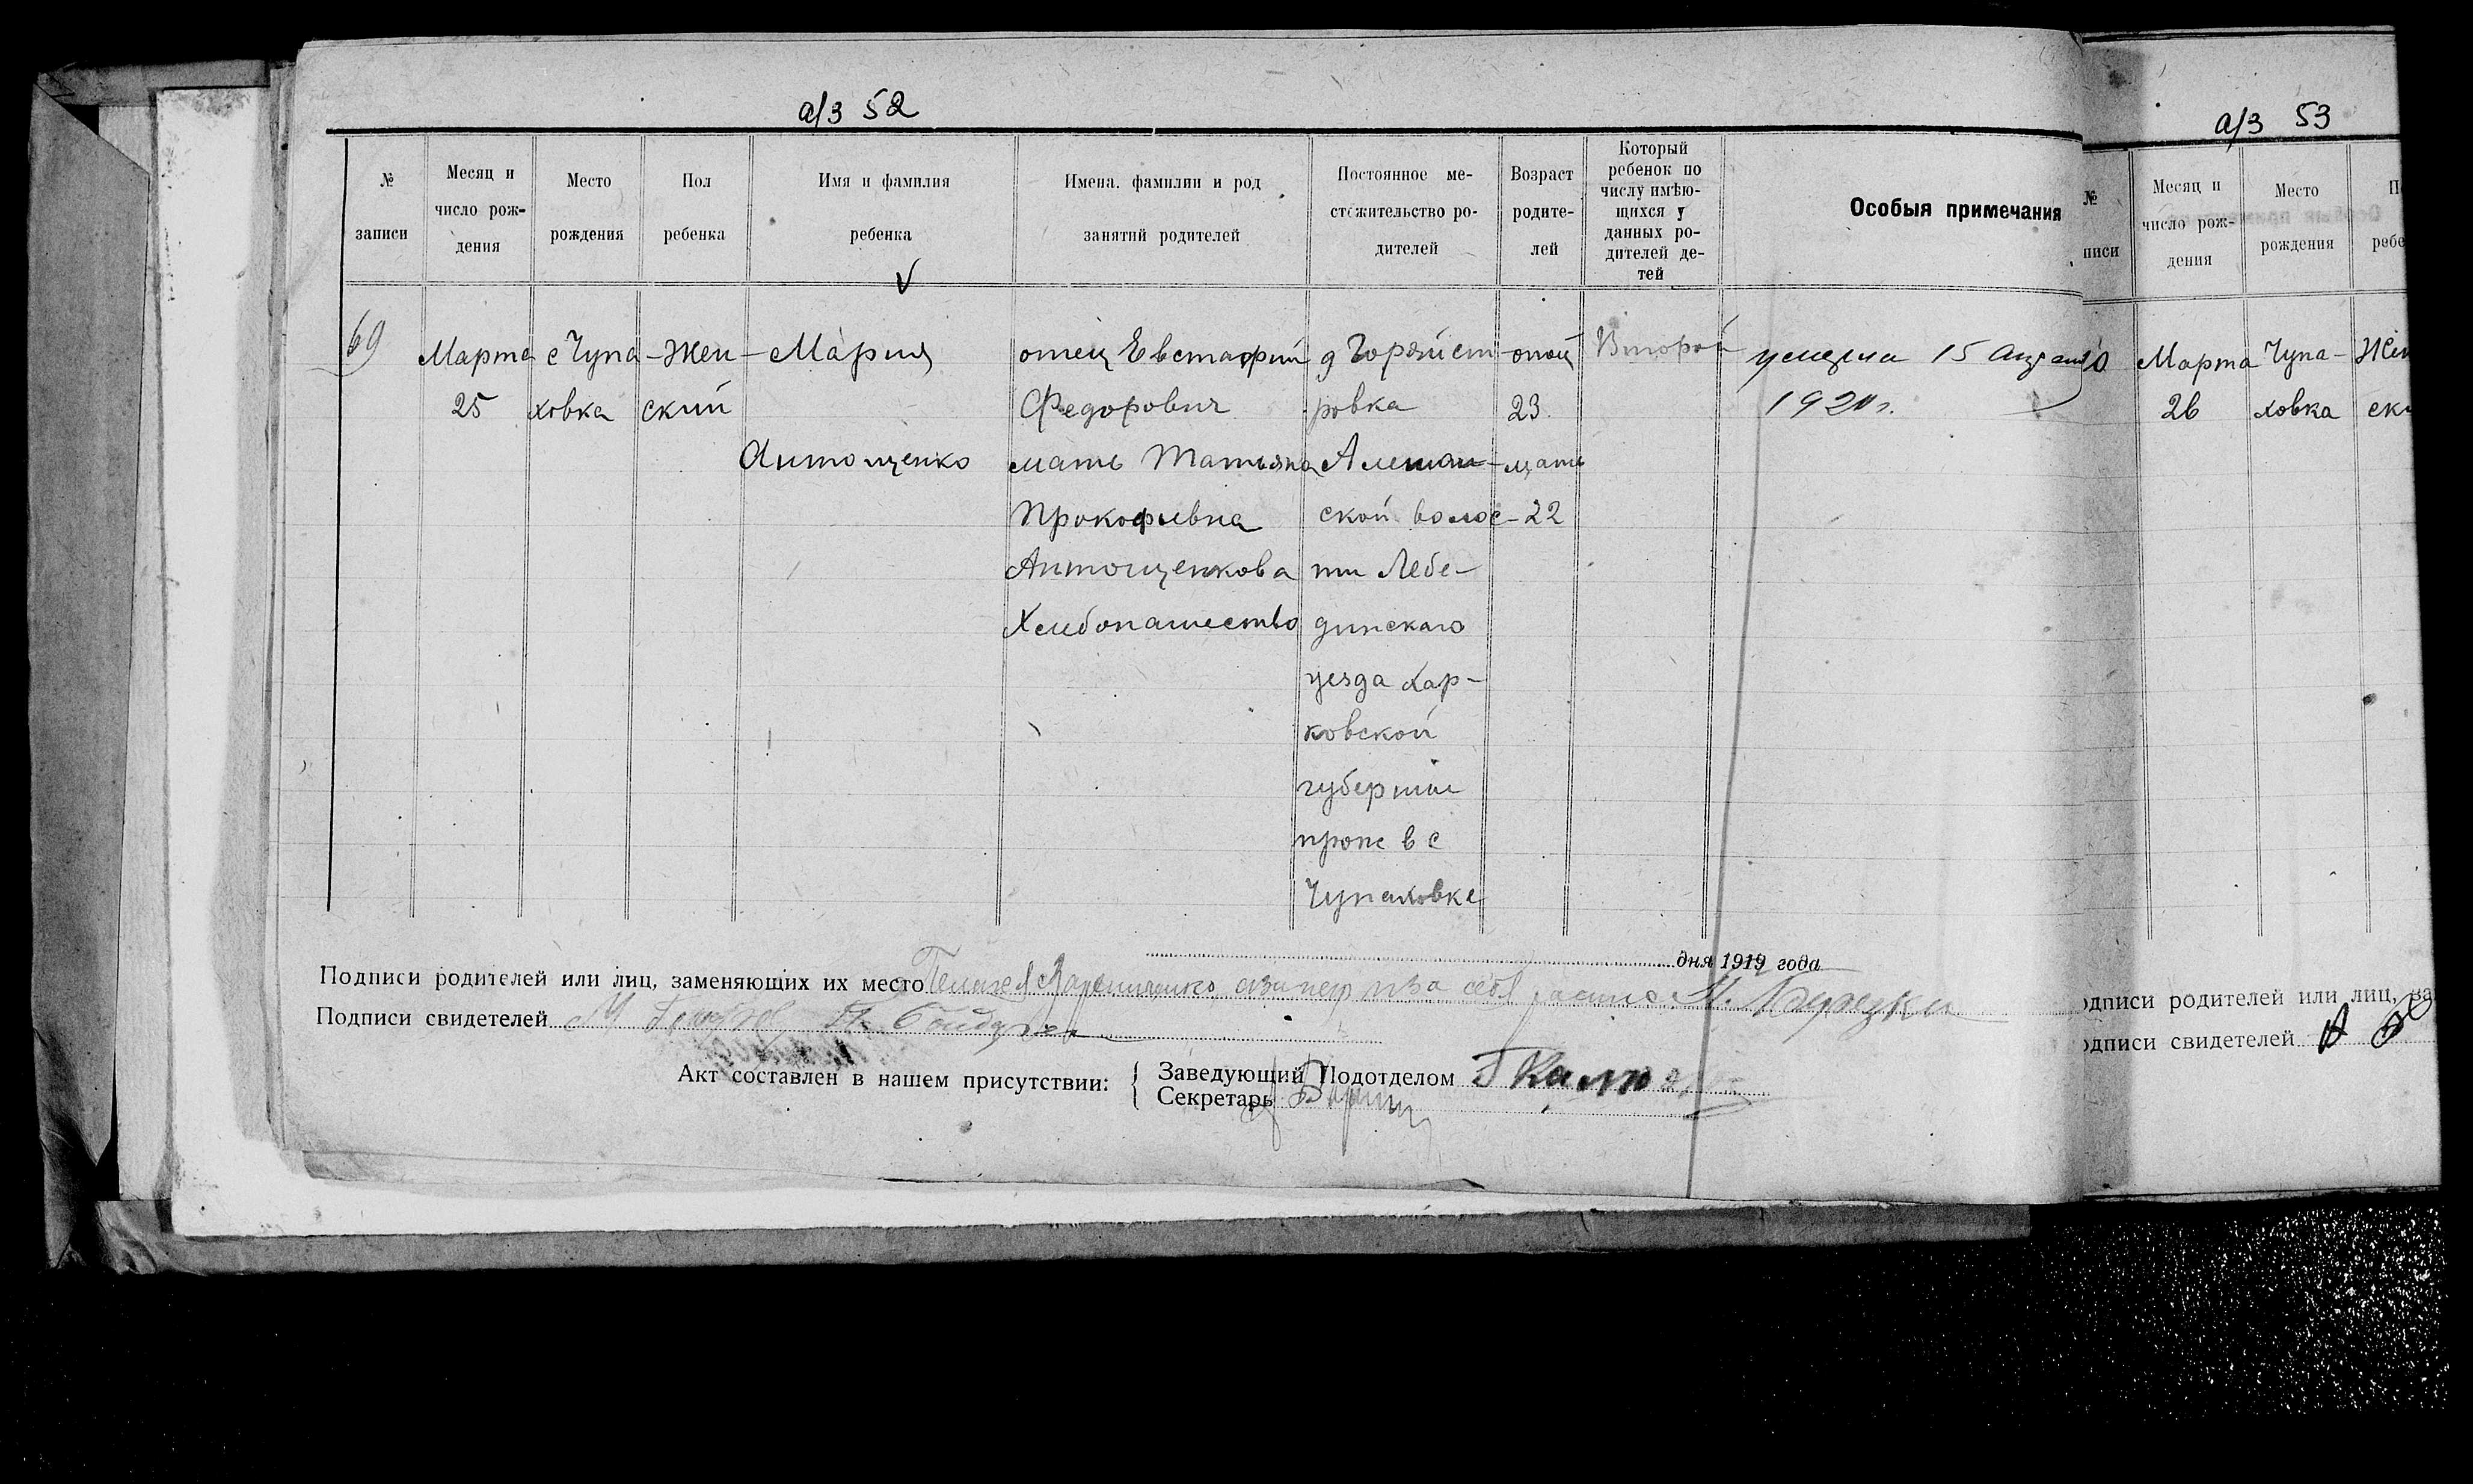 а/з 52
№ записи
Месяц и число рождения
Место рождения
Пол ребенка
Имя и фамилия ребенка
Имена. фамилии и род занятий родителей
Постоянное местожительство родителей
Возраст родителей
Который ребенок по числу имѣющихся у данных родителей детей
Особыя примечания
69
Марта
25
с Чупа
ховка
Жен
ский
Мария
Антощенко
отец Евстафий
Федорович
мать Татьяна
Прокофьевна
Антощенкова
Хлебопашество
ровка
ской волос-
ти Лебе-
динскаго
уезда Хар-
ковской
губернии
прож в с
Чупаховке
отец
23
мать
22
Второй
умерла 15 апреля
1920 г.
дня 1919 года
Подписи родителей или лиц, заменяющих их место
Подписи свидетелей
Акт составлен в нашем присутствии:
Заведующий Подотделом
Секретарь
а/з 53
№
писи
Месяц и
число рож-
дения
Место
рождения
П
ребе
0
Марта
26
Чупа-
ховка
Жен
ски
одписи родителей или лиц, за
одписи свидетелей